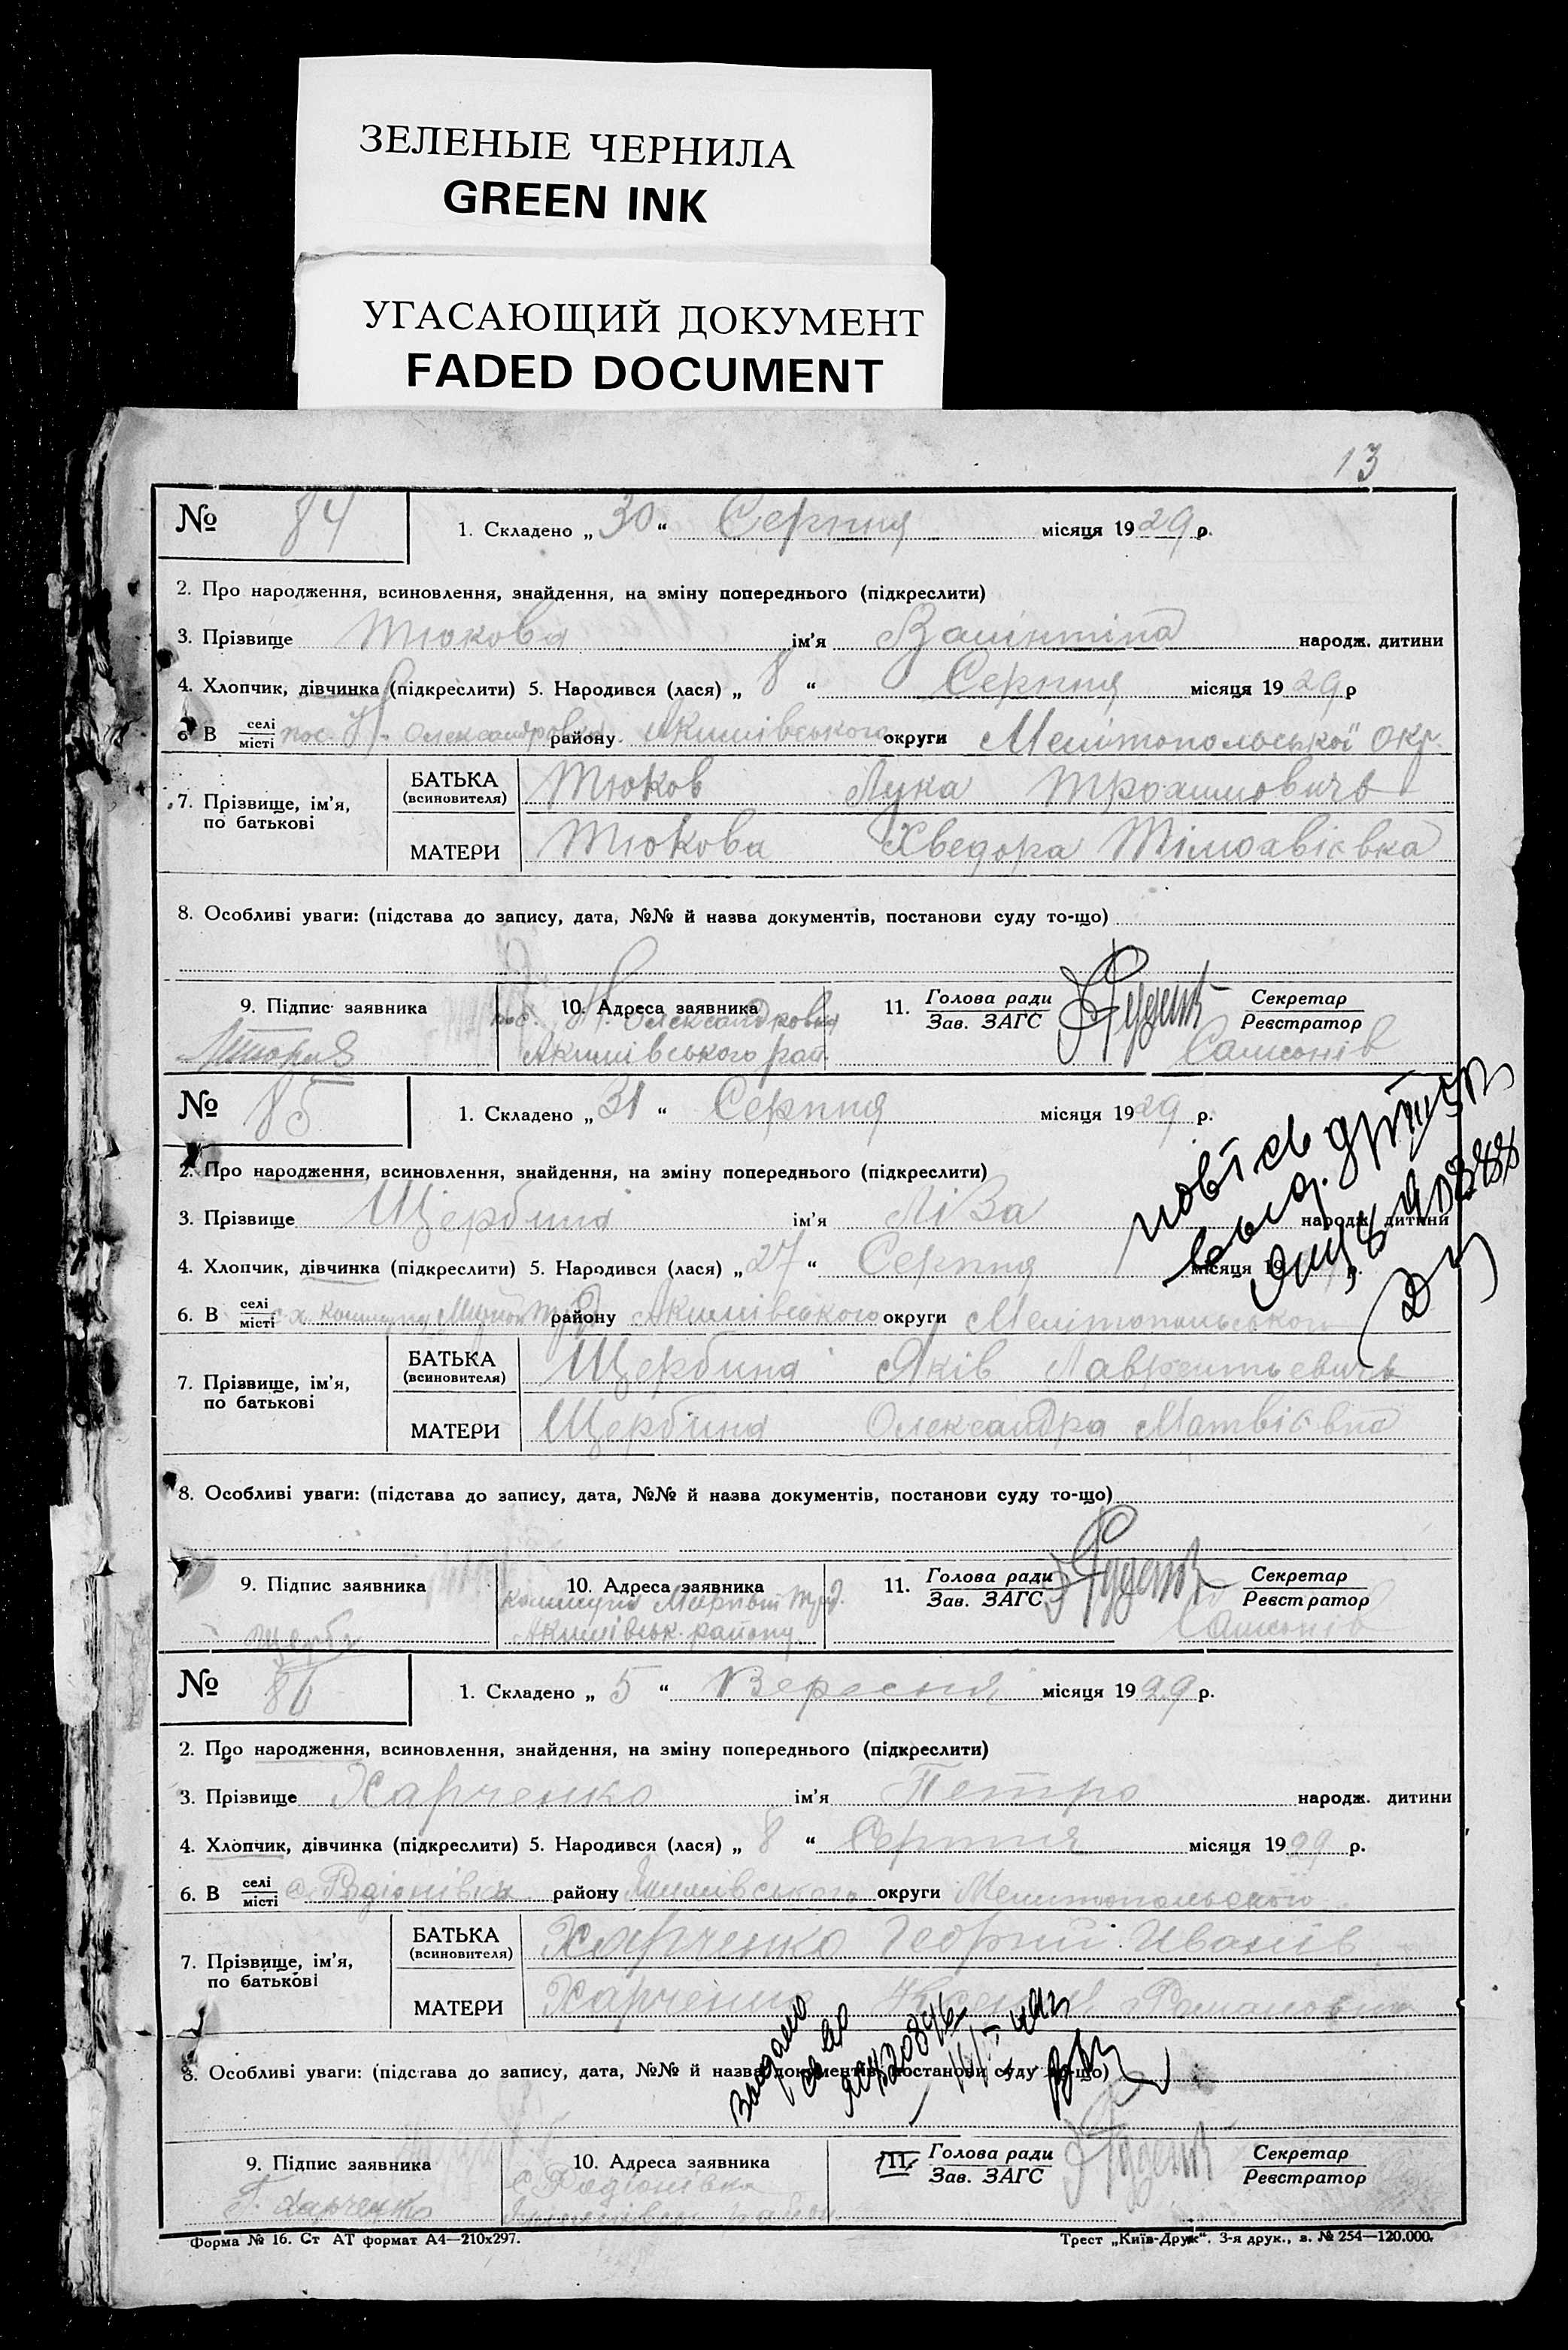 ЗЕЛЕНЫЕ ЧЕРНИЛА
GREEN INK
УГАСАЮЩИЙ ДОКУМЕНТ
FADED DOCUMENT
13
№ 84 1. Складено „30“ Серпня місяця 1929 р.
2. Про народження, всиновлення, знайдення, на зміну попереднього (підкреслити)
3. Прізвище Тюкова ім'я Валінтіна народж. дитини
4. Хлопчик, дівчинка (підкреслити) 5. Народився (лася) „8“ Серпня місяця 1929 р
6 В селі місті пос. Н. Олександровка району Якимівського округи Мелітопольської окр.
7. Прізвище, ім'я, по батькові
БАТЬКА (всиновителя) Тюков Лука Трохимовичь
МАТЕРИ Тюкова Хведора Тімохвієвна
8. Особливі уваги: (підстава до запису, дата, №№ й назва документів, постанови суду то-що)
9. Підпис заявника 10. Адреса заявника 11. Голова ради Зав. ЗАГС Секретар Реєстратор
пос. Н. Олександровка
Якимівського рай. Самсонів
№ 85 1. Складено „31“ Серпня місяця 1929 р.
2. Про народження, всиновлення, знайдення, на зміну попереднього (підкреслити)
3. Прізвище Щербина ім'я Ліза народж. дитини
4. Хлопчик, дівчинка (підкреслити) 5. Народився (лася) „27“ Серпня місяця 19 р.
6. В селі місті с.х. комуна Мирний Труд району Якимівського округи Мелітопольського
7. Прізвище, ім'я, по батькові
БАТЬКА (всиновителя) Щербина Яків Лаврентьевичь
МАТЕРИ Щербина Олександра Матвієвна
8. Особливі уваги: (підстава до запису, дата, №№ й назва документів, постанови суду то-що)
9. Підпис заявника 10. Адреса заявника 11. Голова ради Зав. ЗАГС Секретар Реєстратор
комуна Мирний Труд.
Щерб Якимівськ. району Самсонів
№ 86 1. Складено „5“ Вересня місяця 1929 р.
2. Про народження, всиновлення, знайдення, на зміну попереднього (підкреслити)
3. Прізвище Харченко ім'я Петро народж. дитини
4. Хлопчик, дівчинка (підкреслити) 5. Народився (лася) „8“ Серпня місяця 1929 р.
6. В селі місті с. Радіонівка району Якимівського округи Мелитопольского
7. Прізвище, ім'я, по батькові
БАТЬКА (всиновителя) Харченко Георгий Иванів
МАТЕРИ Харченко Романовна
8. Особливі уваги: (підстава до запису, дата, №№ й назва документів, постанови суду то-що)
9. Підпис заявника 10. Адреса заявника 11. Голова ради Зав. ЗАГС Секретар Реєстратор
с Радіонівка
Г. Харченко
Форма № 16. Ст АТ формат А4—210х297. Трест „Київ-Друк“. 3-я друк., з. № 254—120.000.